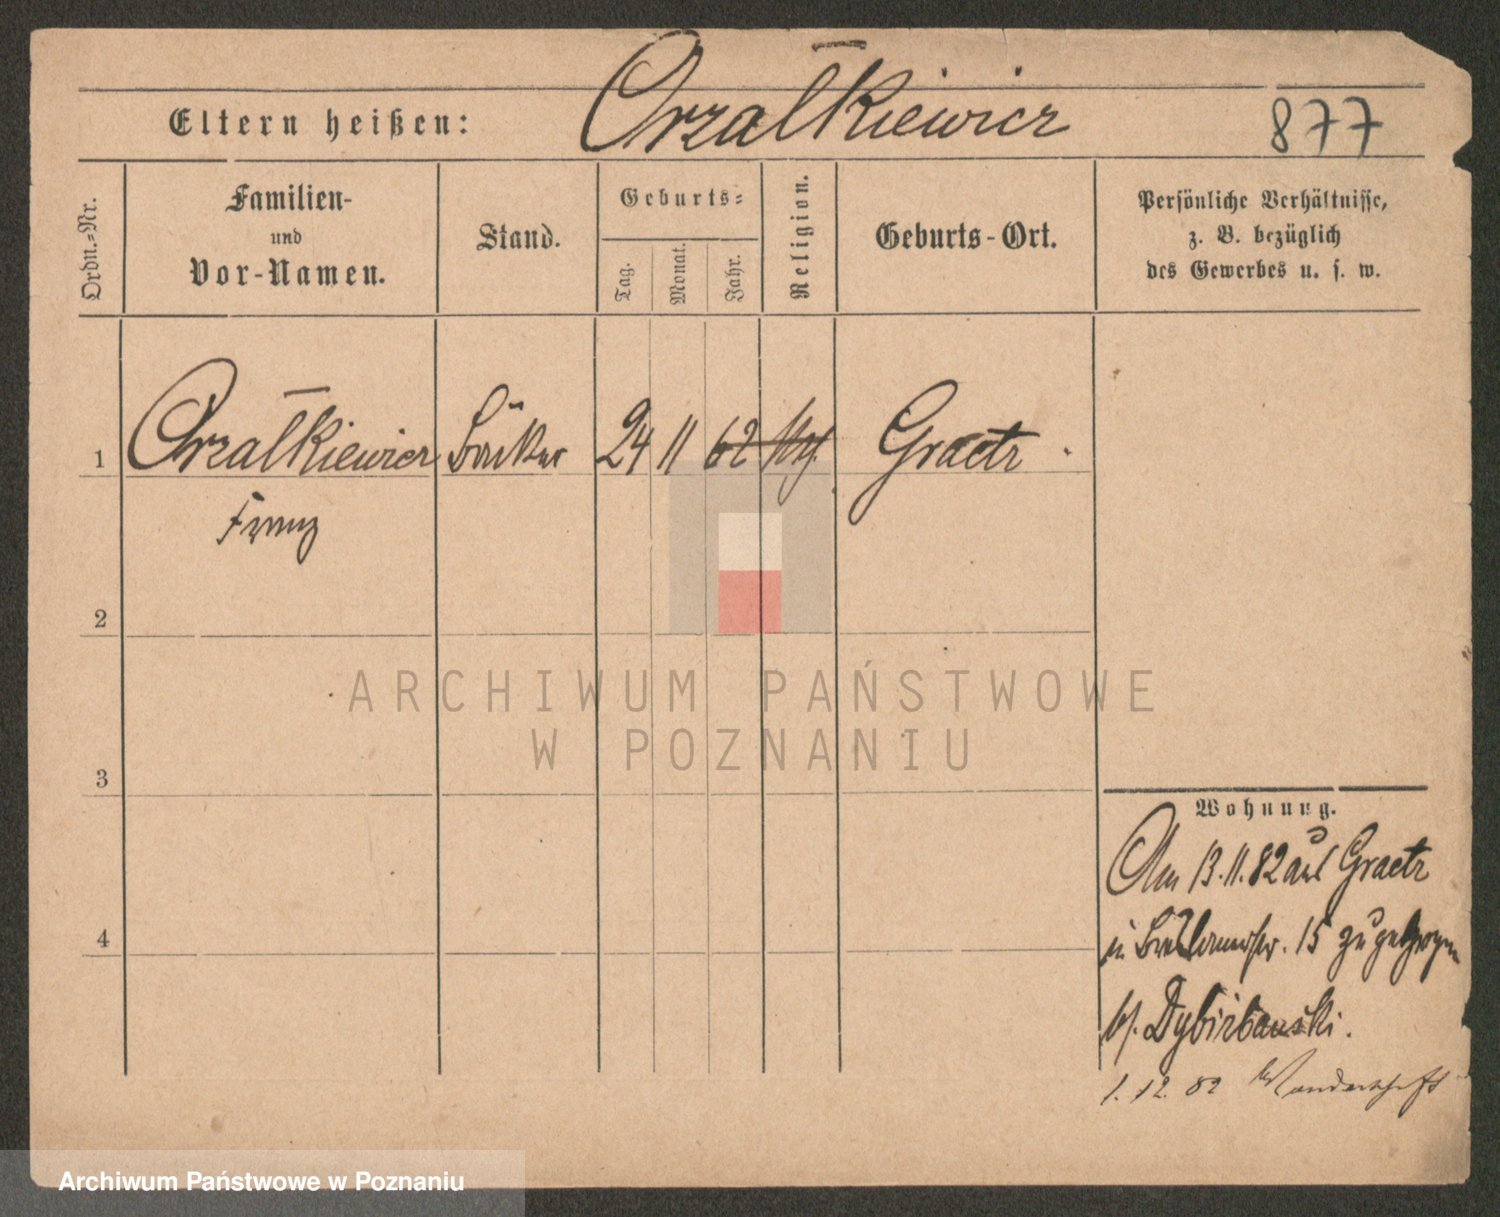 Orzałkiewicz
Eltern heißen:
877
Ordn.-Nr.
Familien-
und
Vor-Namen.
Stand.
Geburts-
Tag.
Monat.
Jahr.
Religion.
Geburts-Ort.
Persönliche Verhältnisse,
z. B. bezüglich
des Gewerbes u. s. w.
1 Orzałkiewicz Bäcker 24 11 62 Graetz.
Franz
2
3
4
Wohnung.
Am 13.11.82 aus Graetz
in 15 zugezogen
b/.
1. 12. 82 Wanderschaft
ARCHIWUM PAŃSTWOWE
W POZNANIU
Archiwum Państwowe w Poznaniu